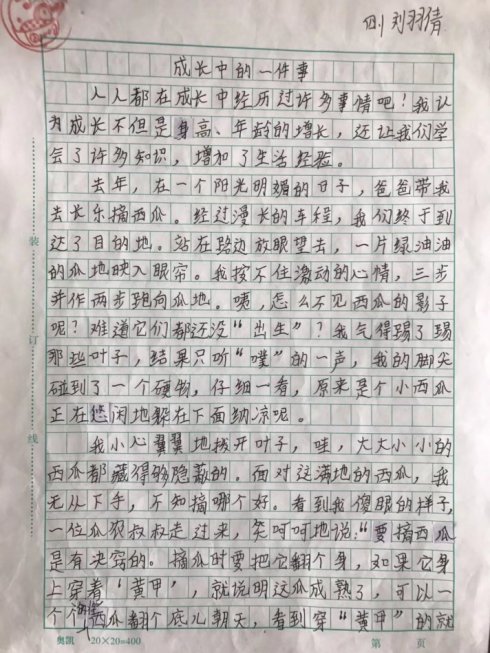 四1 刘羽倩
成长中的一件事
人人都在成长中经历过许多事情吧！我认
为成长不但是身高、年龄的增长，还让我们学
会了许多知识，增加了生活经验。
去年，在一个阳光明媚的日子，爸爸带我
去长乐摘西瓜。经过漫长的车程，我们终于到
达了目的地。站在路边放眼望去，一片绿油油
的瓜地映入眼帘。我按不住激动的心情，三步
并作两步跑向瓜地。咦，怎么不见西瓜的影子
呢？难道它们都还没“出生”？我气得踢了踢
那些叶子，结果只听“噗”的一声，我的脚尖
碰到了一个硬物，仔细一看，原来是个小西瓜
正在悠闲地躲在下面纳凉呢。
我小心翼翼地拨开叶子，哇，大大小小的
西瓜都藏得够隐蔽的。面对这满地的西瓜，我
无从下手，不知摘哪个好。看到我傻眼的样子，
一位瓜农叔叔走过来，笑呵呵地说：“要摘西瓜
是有决窍的。摘瓜时要把它翻个身，如果它身
上穿着‘黄甲’，就说明这瓜成熟了，可以一
个个西瓜翻个底儿朝天，看到穿“黄甲”的就
装
订
线
奥凯 20×20=400 第 页